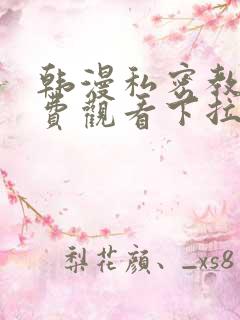 韩漫私密教
費觀看下拉
梨花顔、_xs8